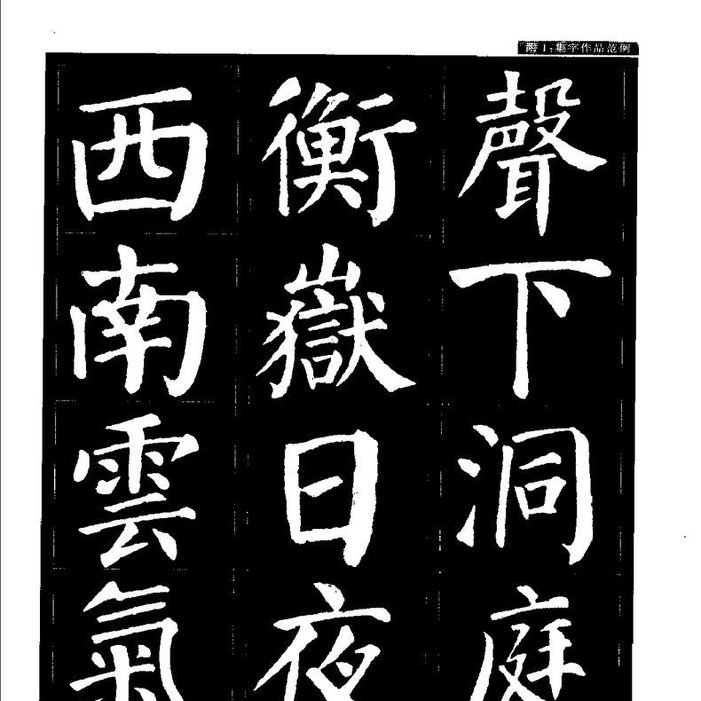 附1:集字作品范例
西南雲氣
衡嶽日夜
聲下洞庭